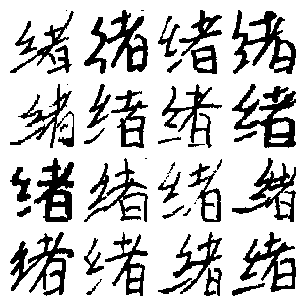 绪绪绪绪
绪绪绪绪
绪绪绪绪
绪绪绪绪